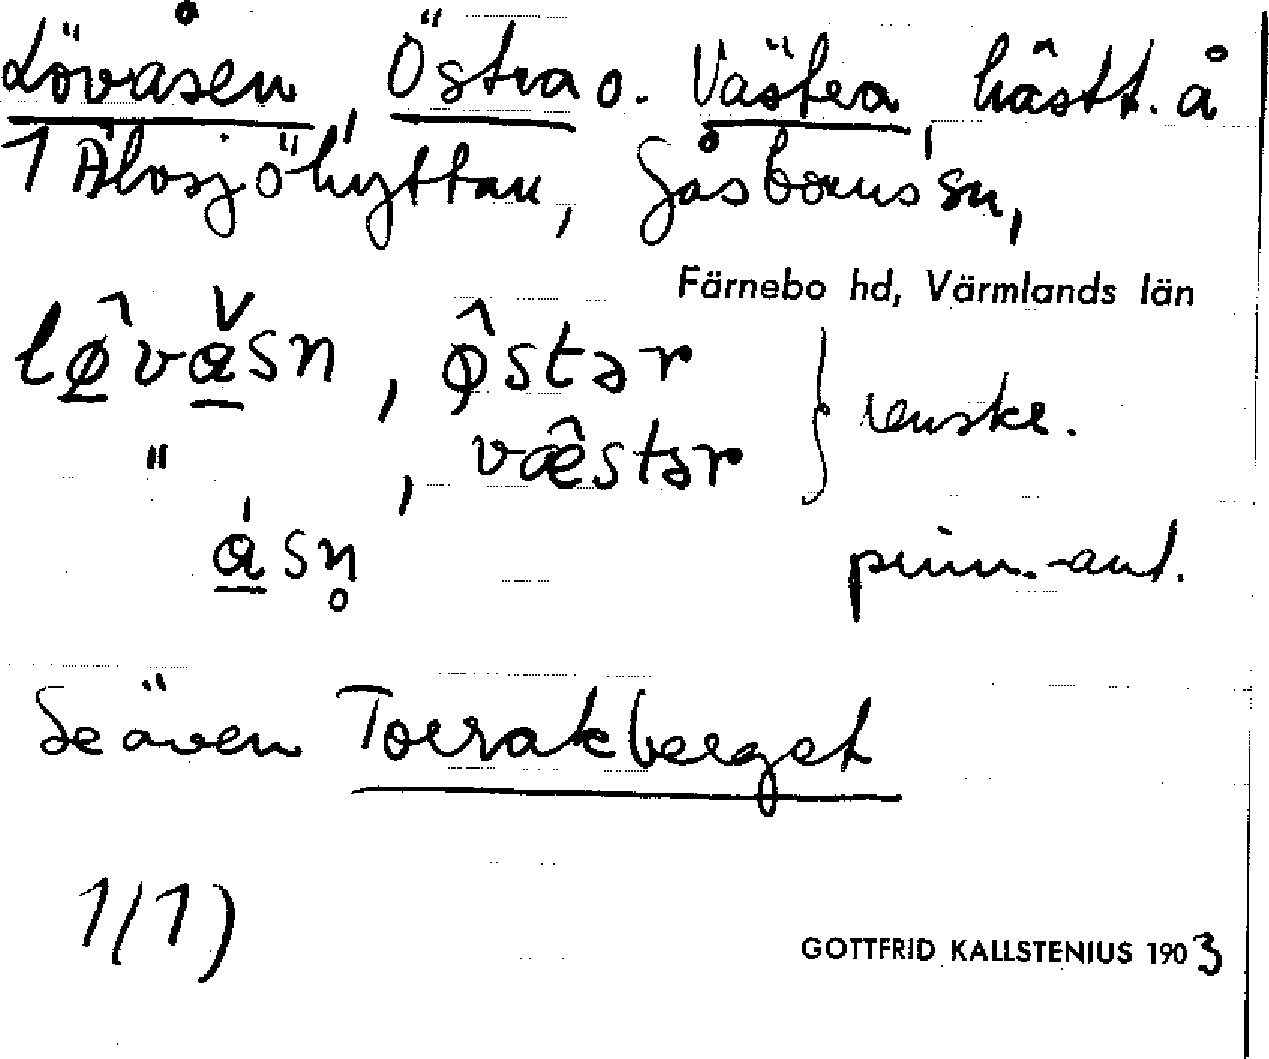 Lövåsen, Östra o. Västra, hästt. å
1 Älvsjöhyttan, Gåsborns sn,
Färnebo hd, Värmlands län
lø̂vǎsn, ø̂stər
" , væ̂stər } svenskt.
ásn̥ finn.-aut.
Se även Torrakberget
1/1)
GOTTFRID KALLSTENIUS 1903